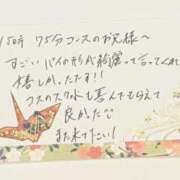 15時 75分コースのお兄様〜
すごい パイの形が綺麗って言ってくれて
嬉しかったです!!
コスのスク水も喜んでもらえて
良かった♡
また来てたい!